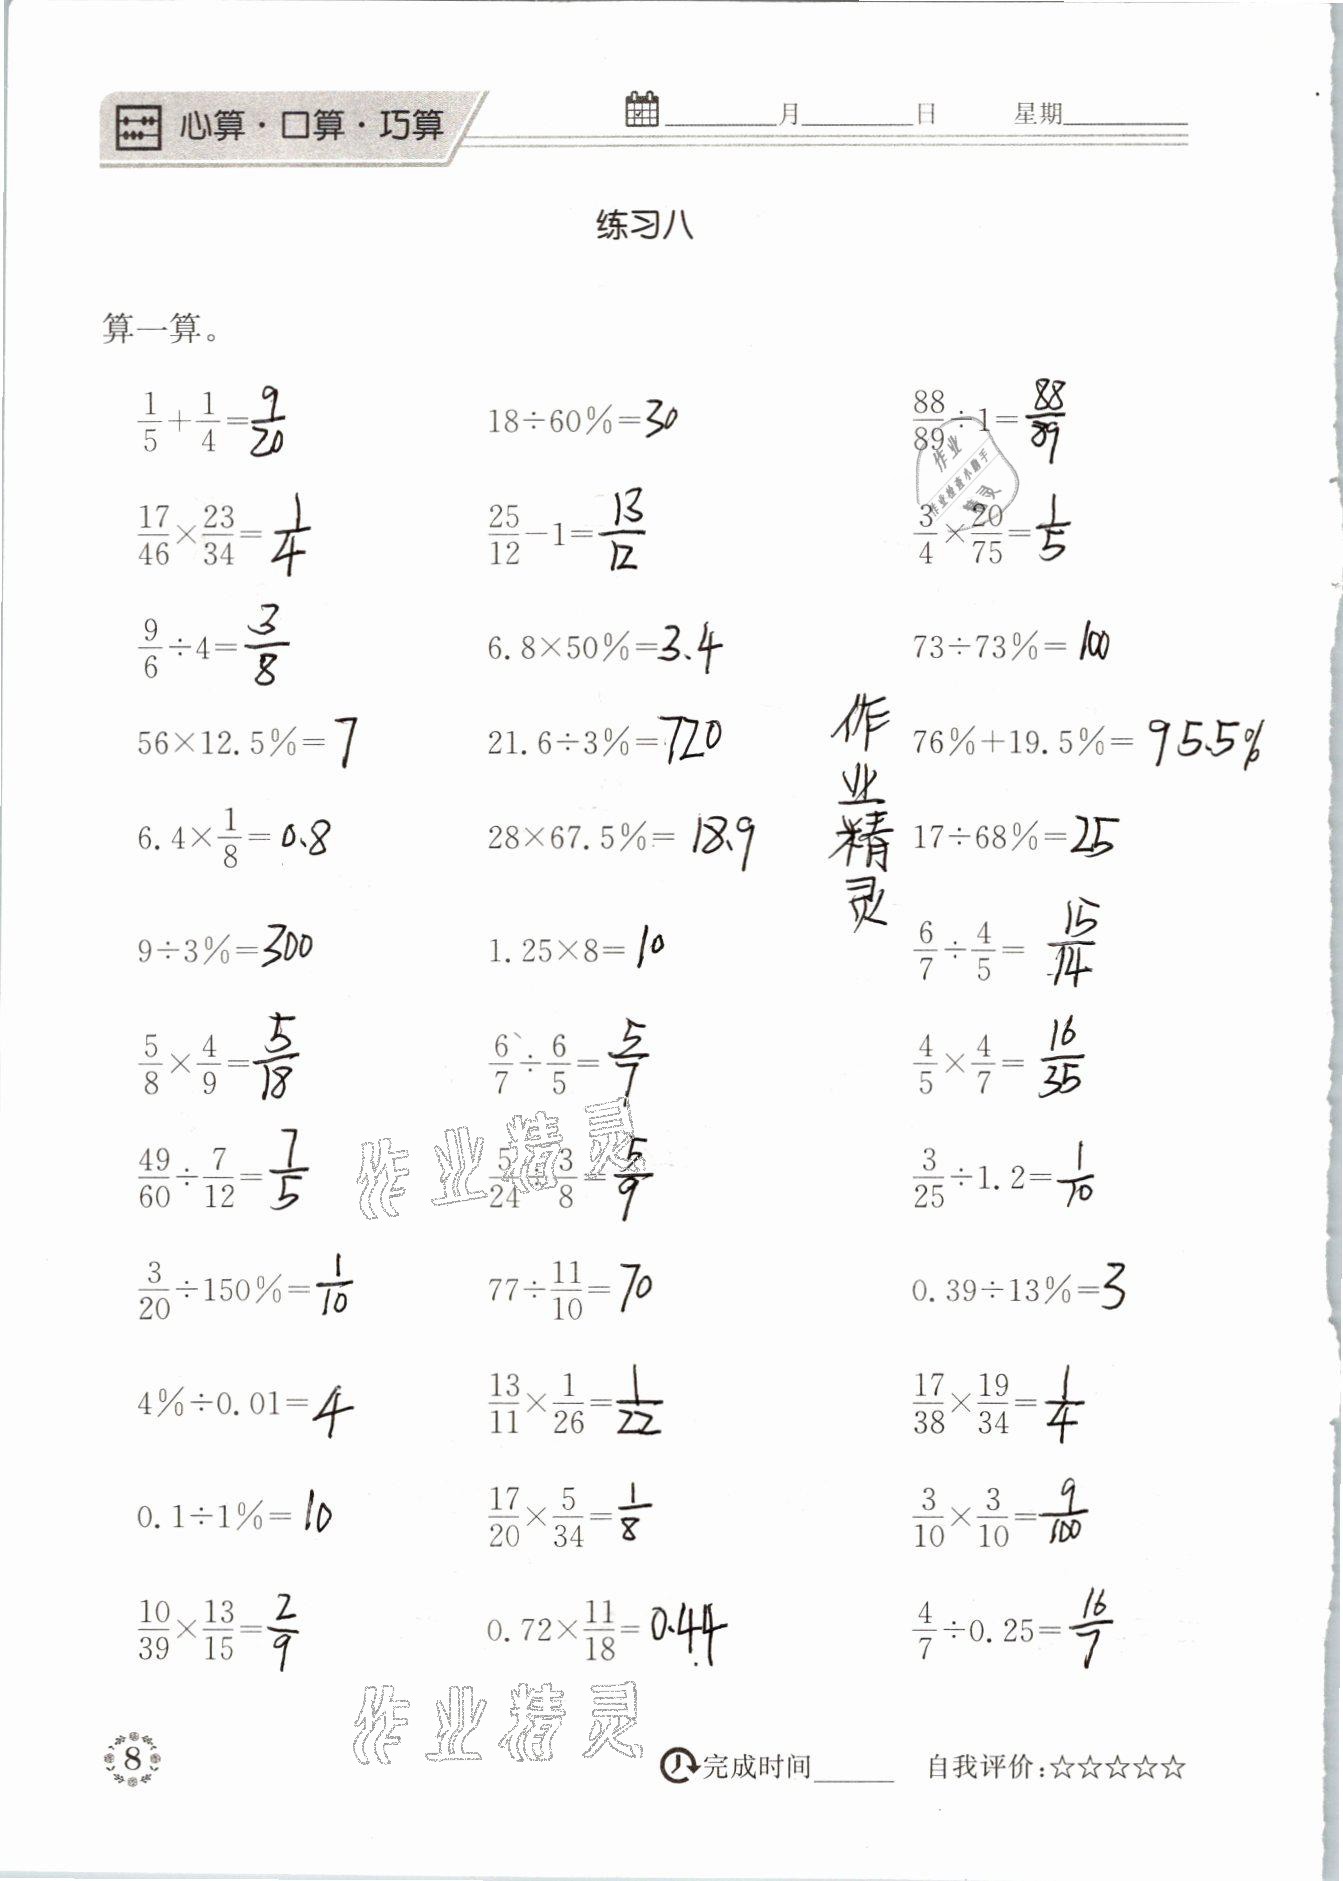 心算·口算·巧算 ______月______日 星期______
练习八
算一算。
1/5+1/4=9/20 18÷60%=30 88/89÷1=88/89
17/46×23/34=1/4 25/12-1=13/12 3/4×20/75=1/5
9/6÷4=3/8 6.8×50%=3.4 73÷73%=100
56×12.5%=7 21.6÷3%=720 76%+19.5%=95.5%
6.4×1/8=0.8 28×67.5%=18.9 17÷68%=25
9÷3%=300 1.25×8=10 6/7÷4/5=15/14
5/8×4/9=5/18 6/7÷6/5=5/7 4/5×4/7=16/35
49/60÷7/12=7/5 5/24÷3/8=5/9 3/25÷1.2=1/10
3/20÷150%=1/10 77÷11/10=70 0.39÷13%=3
4%÷0.01=4 13/11×1/26=1/22 17/38×19/34=1/4
0.1÷1%=10 17/20×5/34=1/8 3/10×3/10=9/100
10/39×13/15=2/9 0.72×11/18=0.44 4/7÷0.25=16/7
作业精灵
作业
作业检查小助手
精灵
作业精灵
作业精灵
8 完成时间______ 自我评价:☆☆☆☆☆